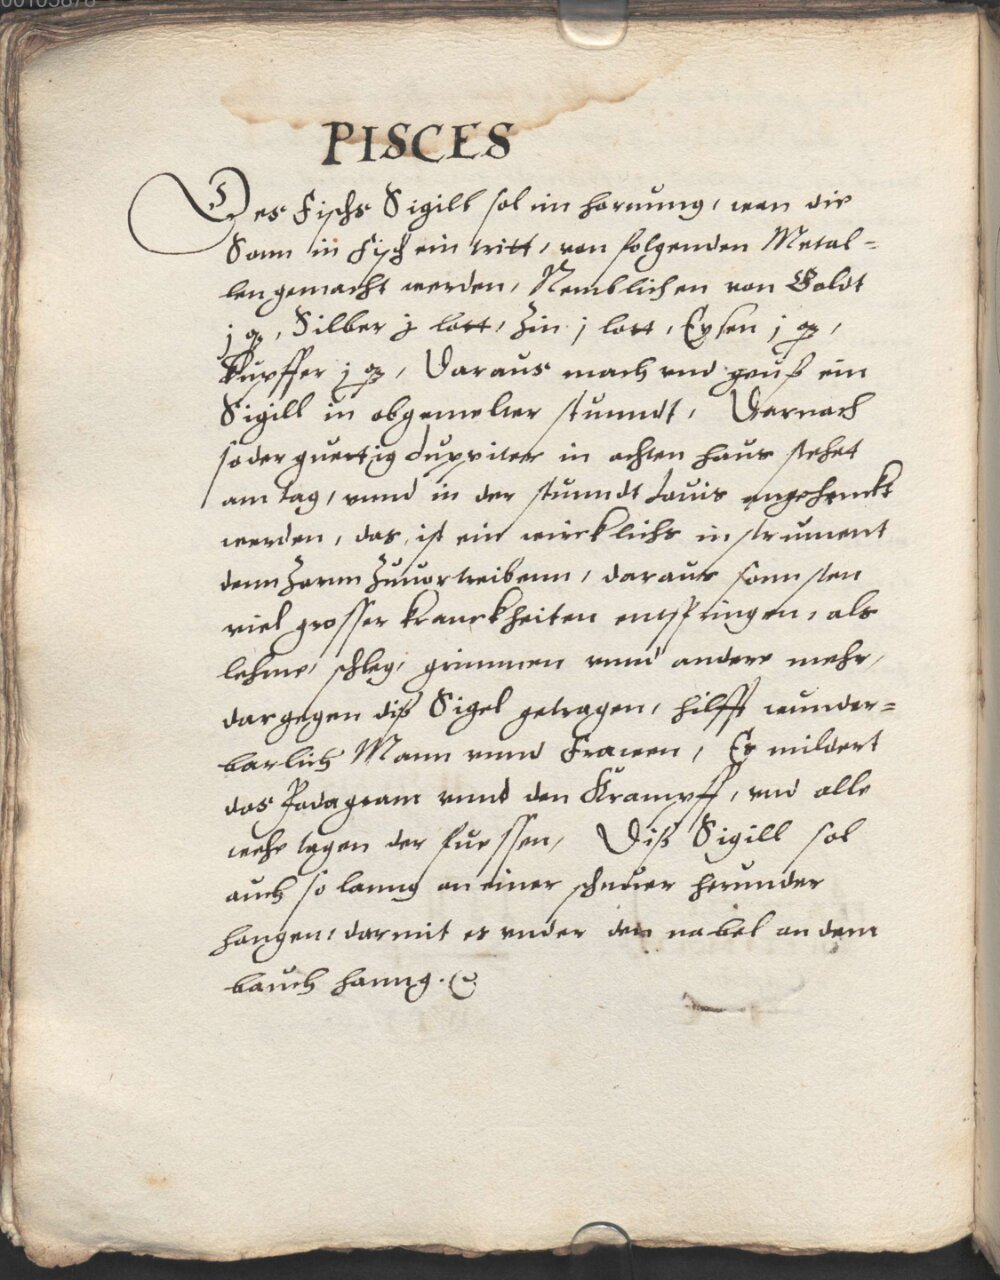 00105878
PISCES
Des Fischs Sigill sol im hornung, wan die
Sonn in Fisch ein tritt, von folgenden Metal=
len gemacht werden, Nemblichen von Goldt
j q, Silber j lott, Zin j lott, Eysen j q,
Kupffer j q, Daraus mach vnd geuß ein
Sigill in obgemelter stunndt, Darnach
so der Juppiter in achten haus stehet
am tag, vnnd in der stunndt Jouis angehenckt
werden, das ist ein wircklichs instrument
denn Zornn Zuuortreibenn, daraus sonnsten
viel grosser kranckheiten entspringen, als
lehme, schleg, grimmen vnnd andere mehr,
dargegen diß Sigel getragen, hilfft wunder=
barlich Mann vnnd Frawen, Er mildert
das Podagram vnnd den Krampff, vnd alle
wehe tagen der fuessen, Diß Sigill sol
auch so lanng an einer schnuer herunder
hangen, darmit es vnder den nabel an dem
bauch hanng.